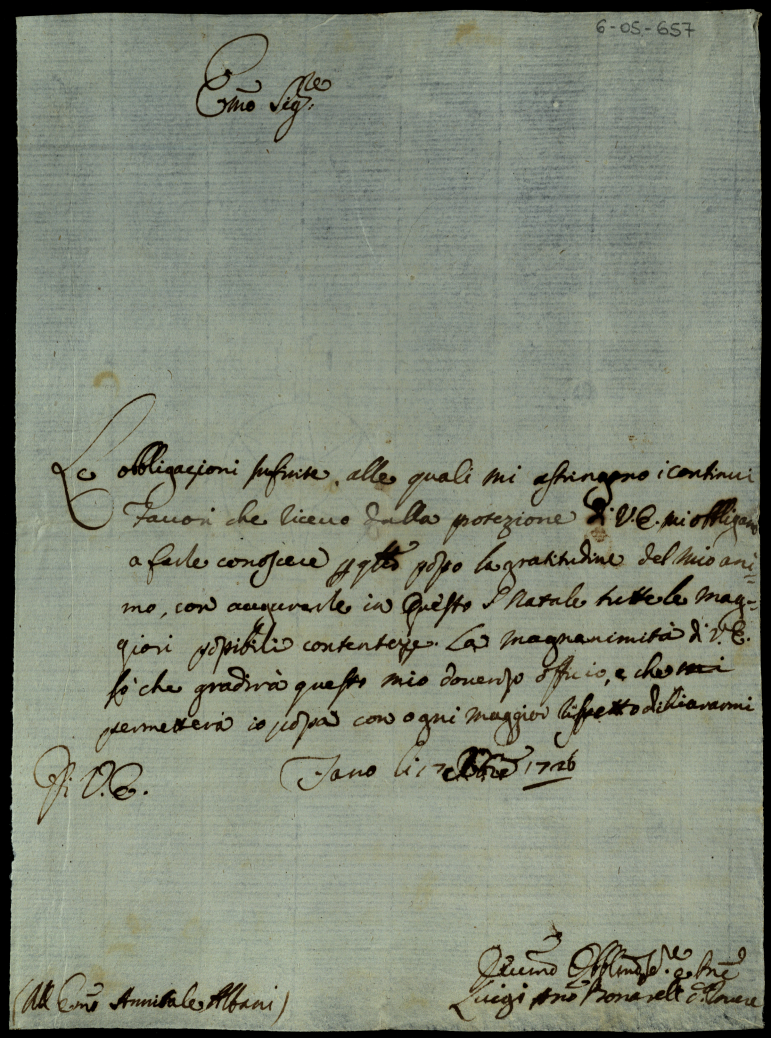 6-05-657
Emo Sigre
Le obbligazioni infinite, alle quali mi astringono i continui
favori che ricevo dalla protezione di V.E. mi obbligano
a farle conoscere quto posso la gratitudine del mio ani-
mo, con augurarle in questo S. Natale tutte le mag-
giori possibili contentezze. La magnanimità di V.E.
sò che gradirà questo mio doveroso officio, e che mi
permetterà io possa con ogni maggior rispetto dichiararmi
Di V.E.
Fano li 17 Xbre 1726
(All Emo Annibale Albani)
Obblmo
Luigi Bonarelli